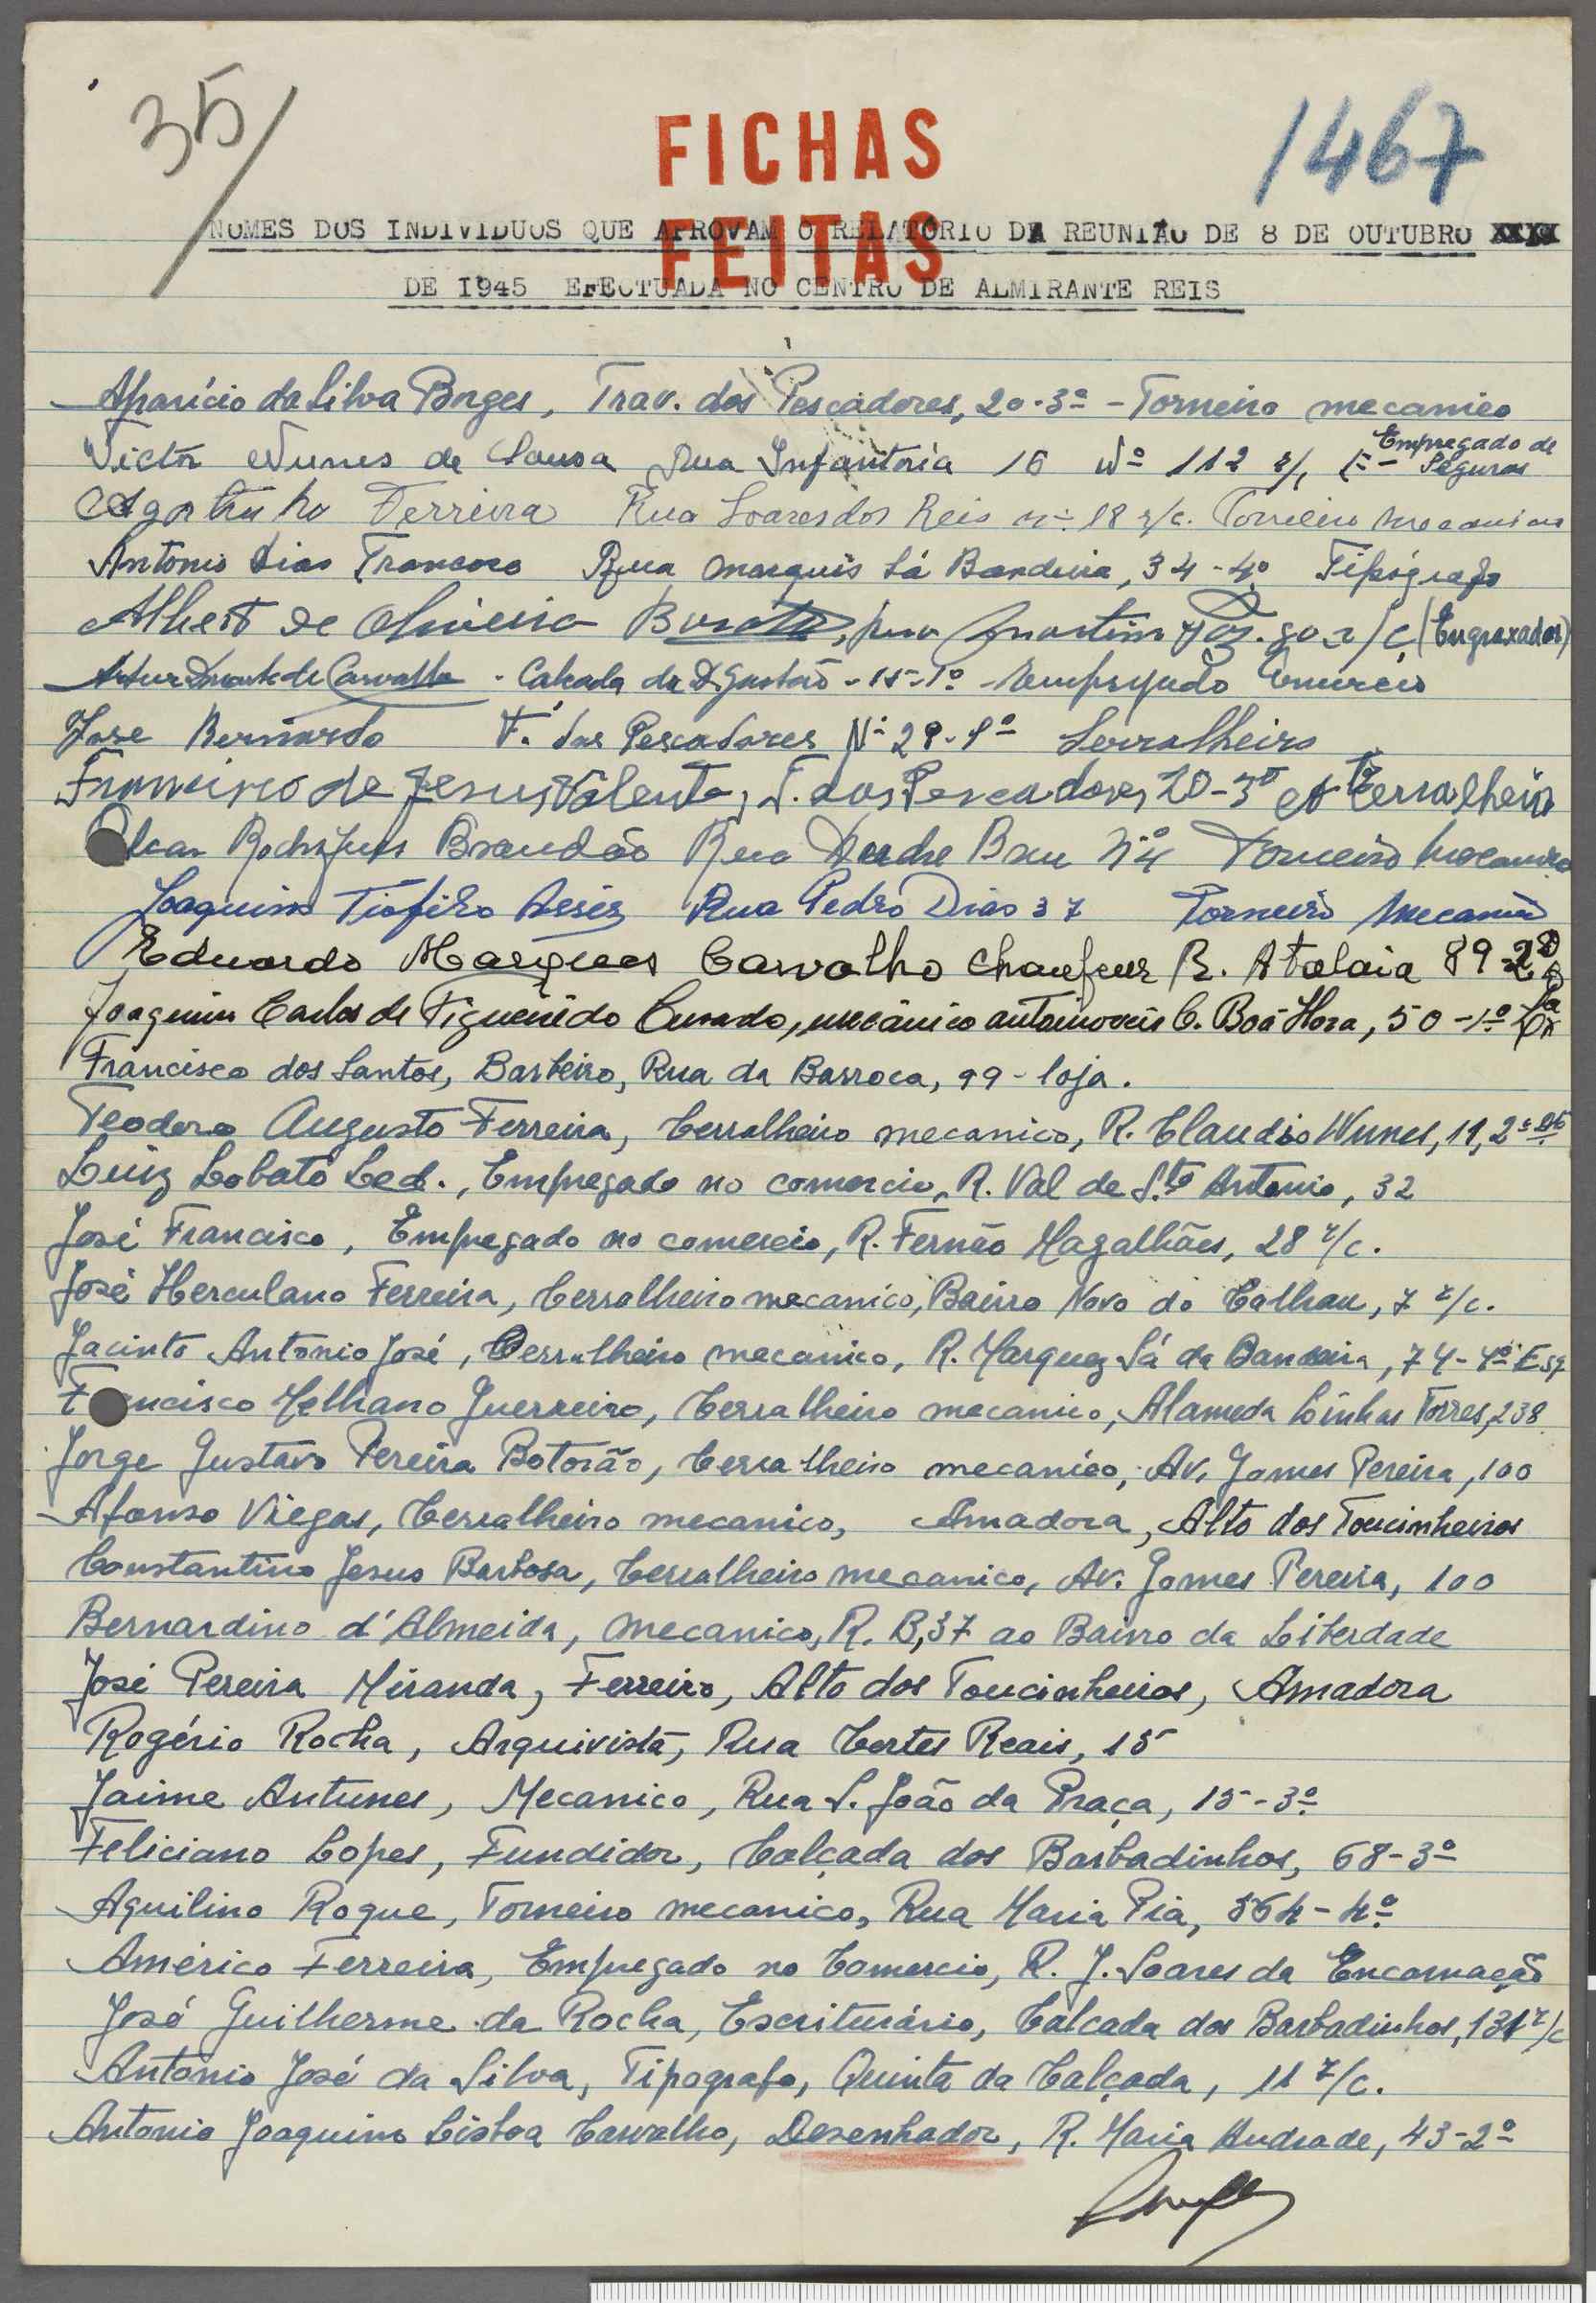 35/
1467
FICHAS
FEITAS
NOMES DOS INDIVIDUOS QUE APROVAM O RELATÓRIO DA REUNIÃO DE 8 DE OUTUBRO
DE 1945 EFECTUADA NO CENTRO DE ALMIRANTE REIS
Aparício da Silva Borges, Trav. dos Pescadores, 20-3º - Torneiro mecanico
Victor Nunes de Sousa Rua Infantaria 16 Nº 112 r/c Eº - Empregado de Seguros
Agostinho Ferreira Rua Soares dos Reis nº 18 r/c. Torneiro mecanico
Antonio Dias Trancoso Rua Marquis Sá Bandeira, 34-4º Tipógrafo
Albert de Oliveira r/c (Engraxador)
Artur Duarte de Carvalho - Calçada de D. Gastão - 15-1º - Empregado Comércio
Jose Bernardo T. dos Pescadores Nº 29-1º Serralheiro
Francisco de Jesus Valente, T. dos Pescadores 20-3º Cerralheiro
Rodrigues Brandão Rua Nº 4 Torneiro Mecanico
Joaquim Tiófilo Assis Rua Pedro Dias 37 Torneiro Mecanico
Eduardo Marques Carvalho Chaufeur R. Atalaia 89-2º D
Joaquim Carlos de Figueirêdo Curado, mecânico automoveis C. Boa-Hora, 50-1º
Francisco dos Santos, Barbeiro, Rua da Barroca, 99-loja.
Teodoro Augusto Ferreira, Cerralheiro mecanico, R. Claudio Nunes, 11, 2º Dto
Luiz Lobato Led., Empregado no comercio, R. Val de Sto Antonio, 32
José Francisco, Empregado no comercio, R. Fernão Magalhães, 28 r/c.
José Herculano Ferreira, Cerralheiro mecanico, Bairro Novo do Calhau, 7 r/c.
Jacinto Antonio José, Cerralheiro mecanico, R. Marquez Sá da Bandeira, 74-4º Esq
F ncisco Melhano Guerreiro, Cerralheiro mecanico, Alameda Linhas Torres, 238
Jorge Gustavo Pereira Botorão, Cerralheiro mecanico, Av. Gomes Pereira, 100
Afonso Viegas, Cerralheiro mecanico, Amadora, Alto dos Toucinheiros
Constantino Jesus Barbosa, Cerralheiro mecanico, Av. Gomes Pereira, 100
Bernardino d'Almeida, Mecanico, R. B, 37 ao Bairro da Liberdade
José Pereira Miranda, Ferreiro, Alto dos Toucinheiros, Amadora
Rogério Rocha, Arquivista, Rua Cortes Reais, 15
Jaime Antunes, Mecanico, Rua S. João da Praça, 15-3º
Feliciano Lopes, Fundidor, Calçada dos Barbadinhos, 68-3º
Aquilino Roque, Torneiro mecanico, Rua Maria Pia, 564-4º
Américo Ferreira, Empregado no Comercio, R. J. Soares da Encarnação
José Guilherme da Rocha, Escriturário, Calcada dos Barbadinhos, 131 r/c
António José da Silva, Tipografo, Quinta da Calçada, 11 r/c.
Antonio Joaquim Lisboa Carvalho, Desenhador, R. Maria Andrade, 43-2º